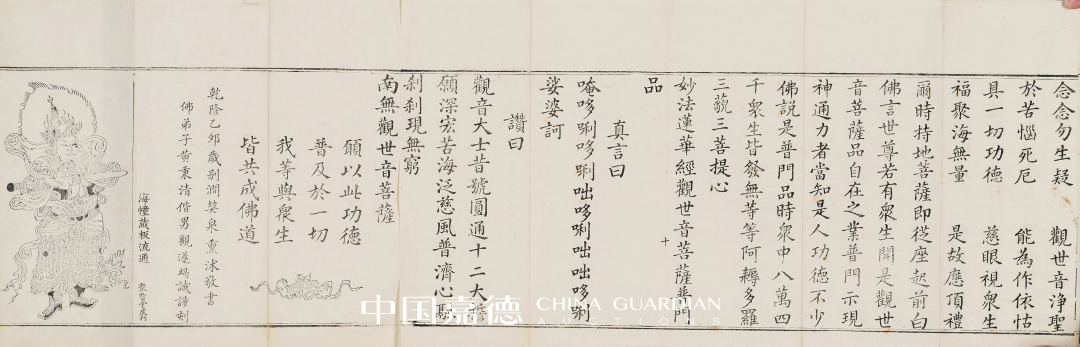 念念勿生疑　觀世音淨聖
於苦惱死厄　能為作依怙
具一切功德　慈眼視衆生
福聚海無量　是故應頂禮
爾時持地菩薩即從座起前白
佛言世尊若有衆生聞是觀世
音菩薩品自在之業普門示現
神通力者當知是人功德不少
佛說是普門品時衆中八萬四
千衆生皆發無等等阿耨多羅
三藐三菩提心
妙法蓮華經觀世音菩薩普門
品
十
真言曰
唵哆唎哆唎咄哆唎咄咄哆唎
娑婆訶
讚曰
觀音大士昔號圓通十二大
願深宏苦海泛慈風普濟心
刹刹現無窮
南無觀世音菩薩
願以此功德
普及於一切
我等與衆生
皆共成佛道
乾隆乙卯歲别澗契泉熏沐敬書
佛弟子黃秉清偕男觀遂竭誠謹刻
海幢藏板流通
中国嘉德 CHINA GUARDIAN
AUCTIONS